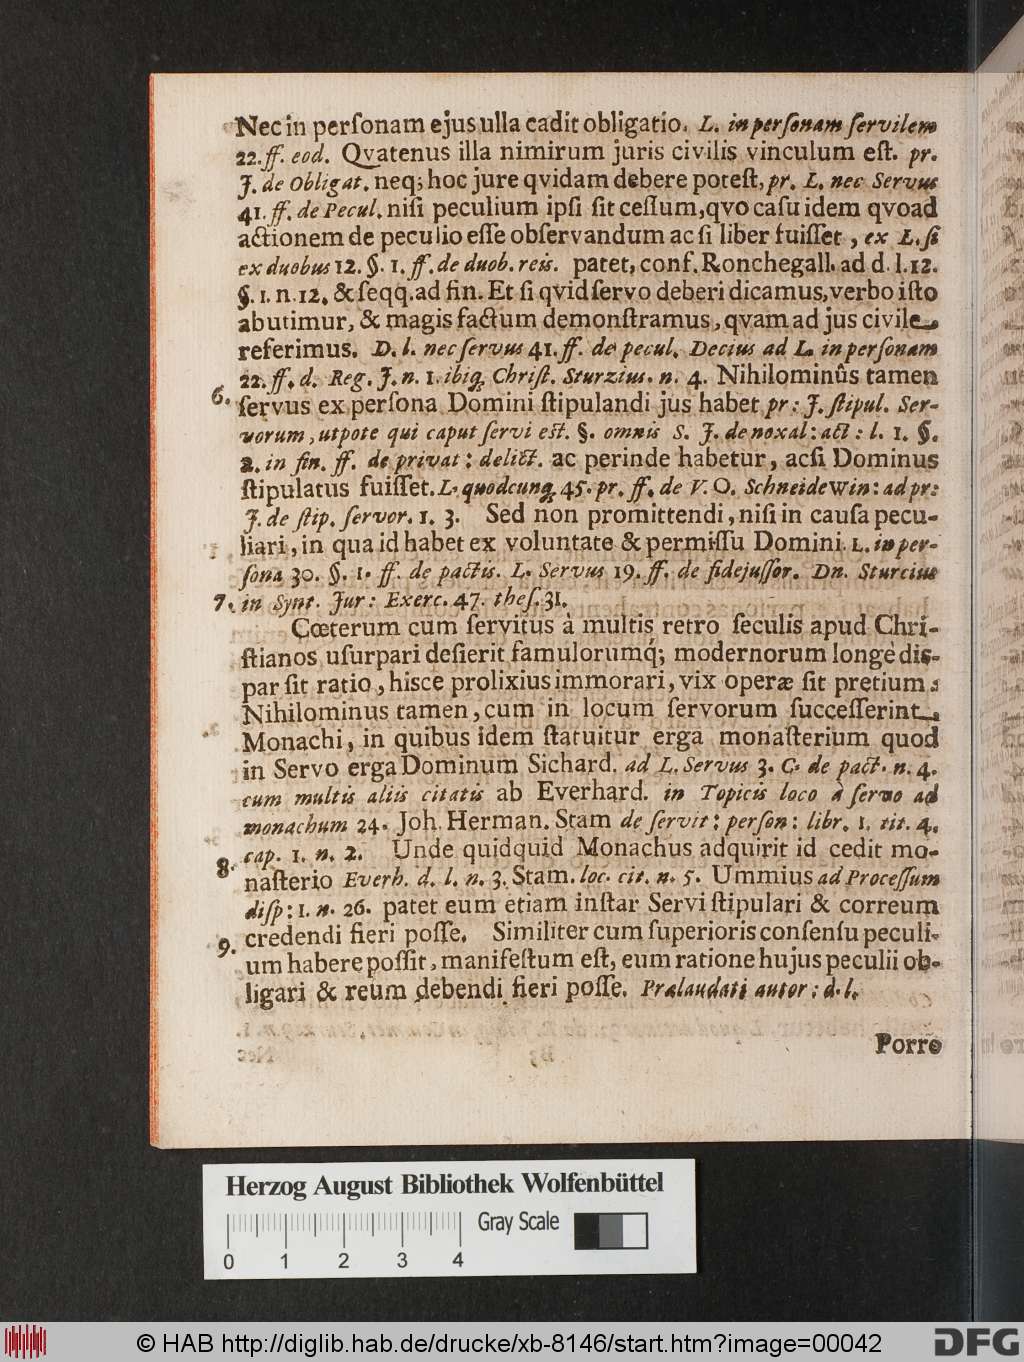 Nec in perſonam ejus ulla cadit obligatio. L. in perſonam ſervilem
22. ff. eod. Qvatenus illa nimirum juris civilis vinculum eſt. pr.
J. de Obligat. neq; hoc jure qvidam debere poteſt, pr. L. nec Servus
41. ff. de Pecul. niſi peculium ipſi ſit ceſſum, qvo caſu idem qvoad
actionem de peculio eſſe obſervandum ac ſi liber fuiſſet, ex L. ſi
ex duobus 12. §. 1. ff. de duob. reis. patet, conf. Ronchegall. ad d. l. 12.
§. 1. n. 12. & ſeqq. ad fin. Et ſi qvid ſervo deberi dicamus, verbo iſto
abutimur, & magis factum demonſtramus, qvam ad jus civile
referimus. D. l. nec ſervus 41. ff. de pecul. Decius ad L. in perſonam
22. ff. d. Reg. J. n. 1. ibiq; Chriſt. Sturzius. n. 4. Nihilominûs tamen
6. ſervus ex perſona Domini ſtipulandi jus habet pr: J. ſtipul. Ser-
vorum, utpote qui caput ſervi est. §. omnis S. J. de noxal: act: l. 1. §.
2. in fin. ff. de privat: delict. ac perinde habetur, acſi Dominus
ſtipulatus fuiſſet. L. quodcunq; 45. pr. ff. de V. O. Schneidewin: ad pr:
J. de ſtip. ſervor. 1. 3. Sed non promittendi, niſi in cauſa pecu-
liari, in qua id habet ex voluntate & permiſſu Domini. L. in per-
ſona 30. §. 1. ff. de pactis. L. Servus 19. ff. de fidejuſſor. Dn. Sturcius
7. in Synt. Jur: Exerc. 47. theſ. 31.
Cœterum cum ſervitus à multis retro ſeculis apud Chri-
ſtianos uſurpari deſierit famulorumq́; modernorum longè diſ-
par ſit ratio, hisce prolixius immorari, vix operæ ſit pretium:
Nihilominus tamen, cum in locum ſervorum ſucceſſerint
Monachi, in quibus idem ſtatuitur erga monaſterium quod
in Servo erga Dominum Sichard. ad L. Servus 3. C. de pact. n. 4.
cum multis aliis citatis ab Everhard. in Topicis loco à ſervo ad
monachum 24. Joh. Herman. Stam de ſervit: perſon: libr. 1. tit. 4.
8. cap. 1. n. 2. Unde quidquid Monachus adquirit id cedit mo-
naſterio Everh. d. l. n. 3. Stam. loc. cit. n. 5. Ummius ad Proceſſum
diſp: 1. n. 26. patet eum etiam inſtar Servi ſtipulari & correum
9. credendi fieri poſſe. Similiter cum ſuperioris conſenſu peculi-
um habere poſſit, manifeſtum eſt, eum ratione hujus peculii ob-
ligari & reum debendi fieri poſſe. Prælaudati autor: d. l.
Porrò
Herzog August Bibliothek Wolfenbüttel
Gray Scale
0 1 2 3 4
© HAB http://diglib.hab.de/drucke/xb-8146/start.htm?image=00042
DFG